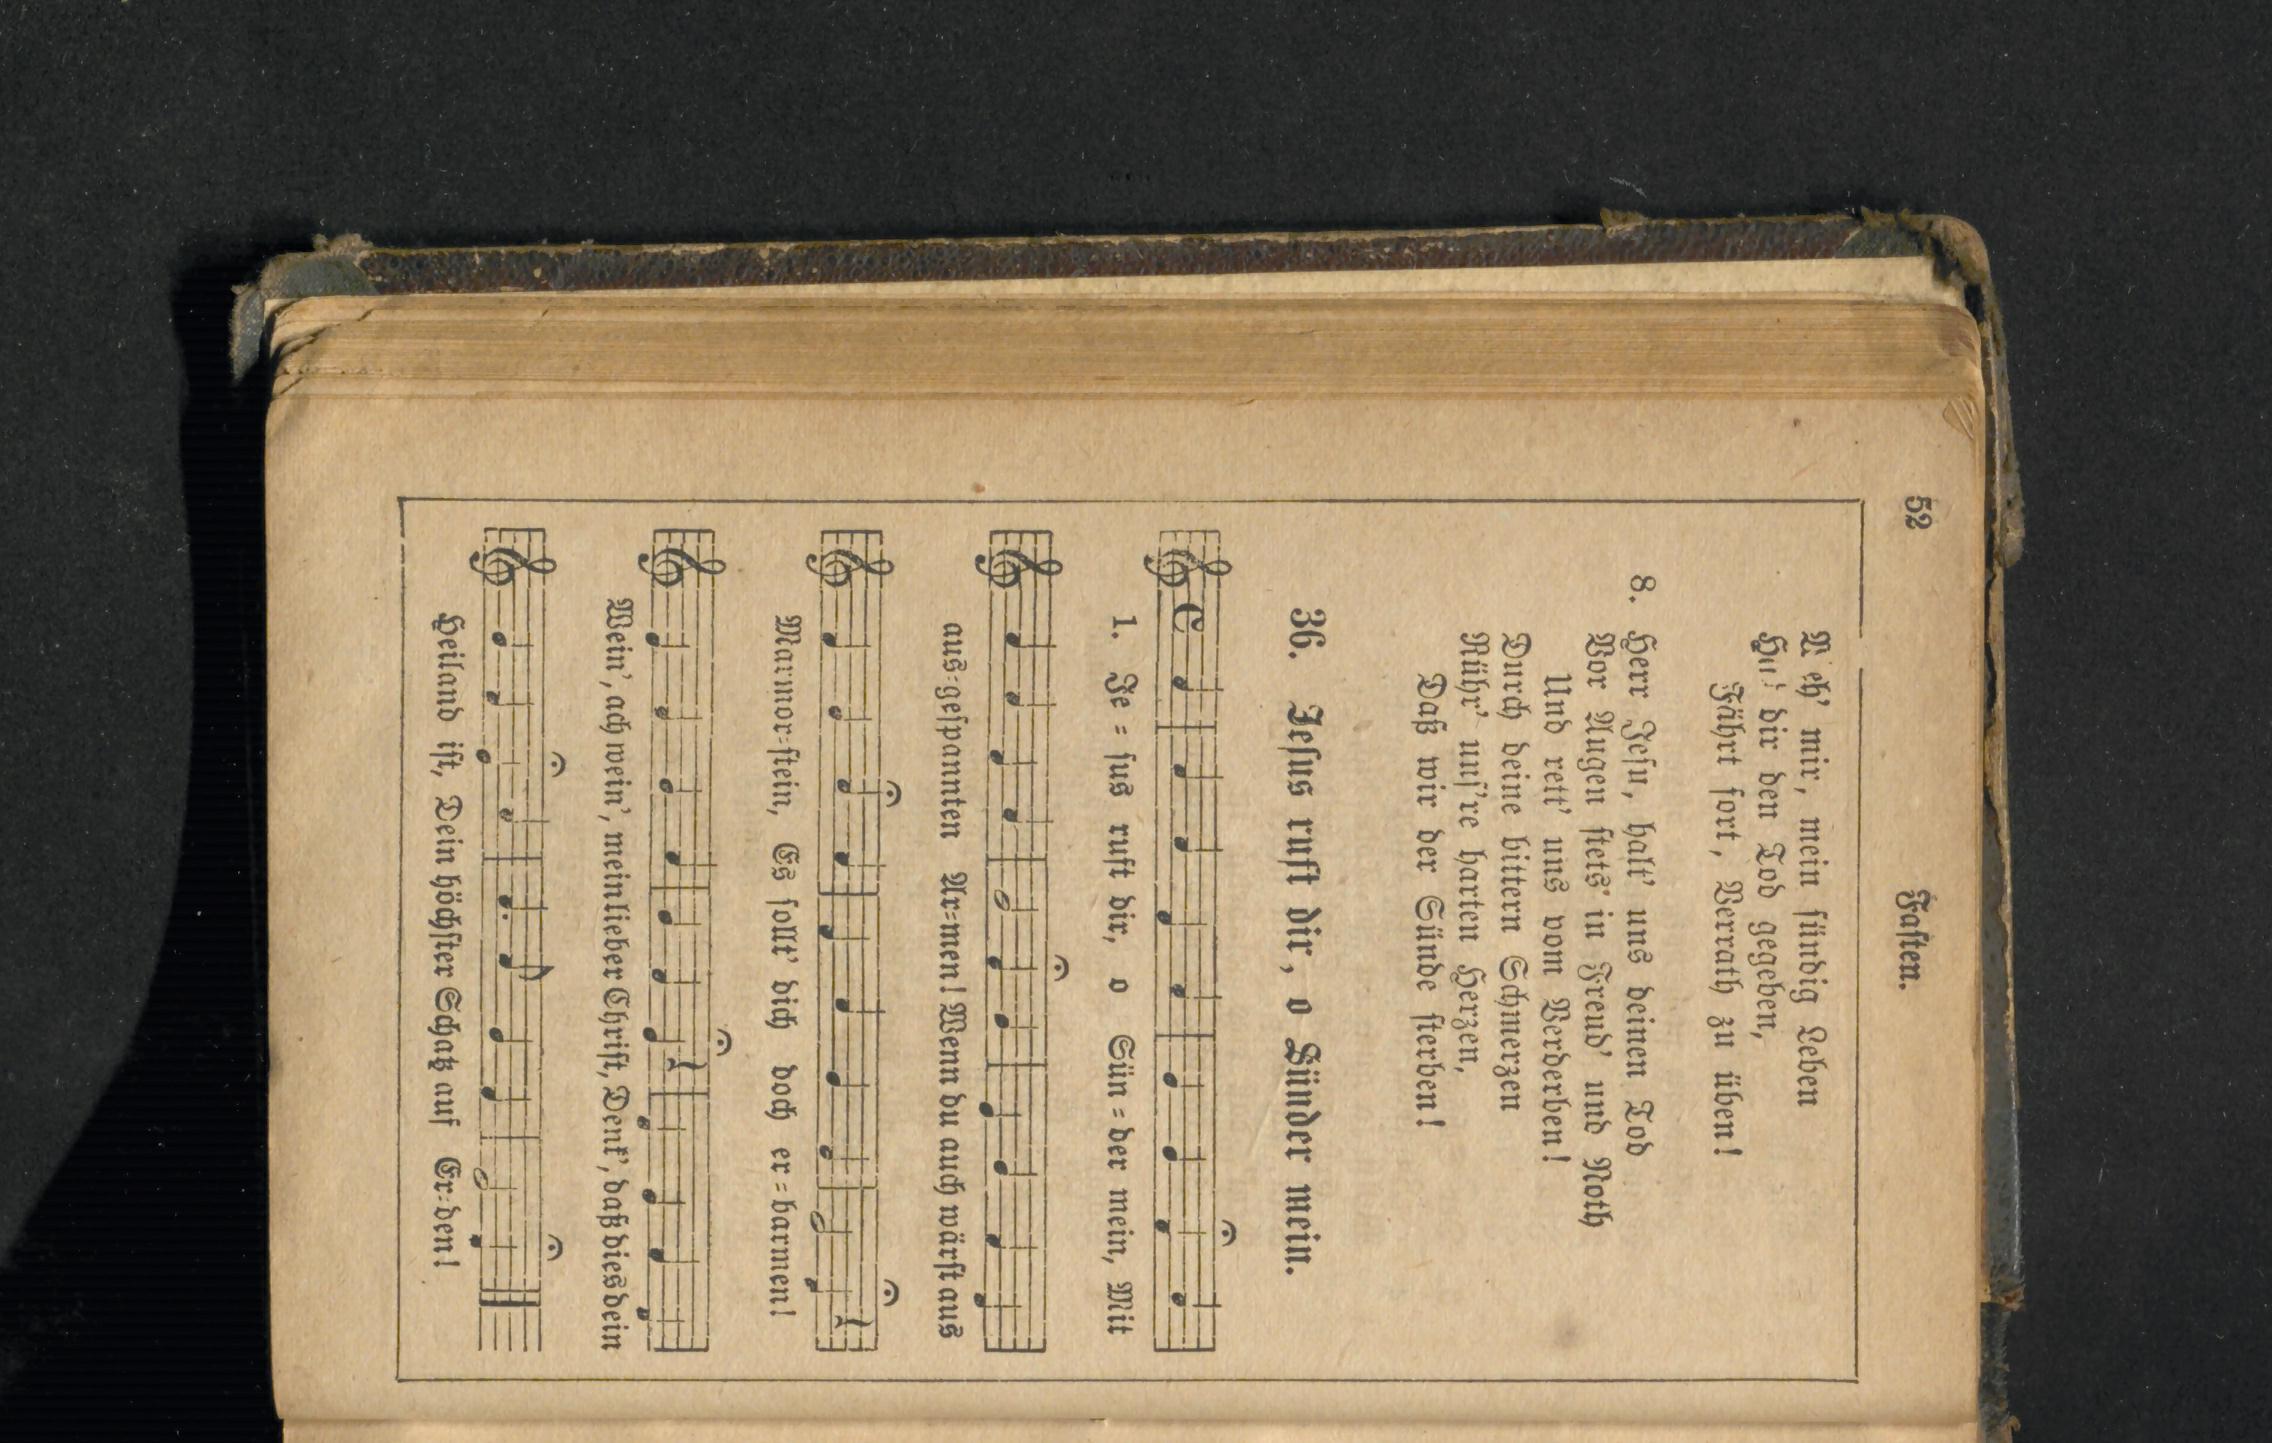 52
Fasten.
mir, mein sündig Leben
dir den Tod gegeben,
Fährt fort, Verrath zu üben!
8. Herr Jesu, halt' uns deinen Tod
Vor Augen stets in Freud' und Noth
Und rett' uns vom Verderben!
Durch deine bittern Schmerzen
Rühr' uns're harten Herzen,
Daß wir der Sünde sterben!
36. Jesus ruft dir, o Sünder mein.
1. Je = sus ruft dir, o Sün = der mein, Mit
aus=gespannten Ar=men! Wenn du auch wärst aus
Marmor=stein, Es sollt' dich doch er = barmen!
Wein', ach wein', mein lieber Christ, Denk', daß dies dein
Heiland ist, Dein höchster Schatz auf Er=den!